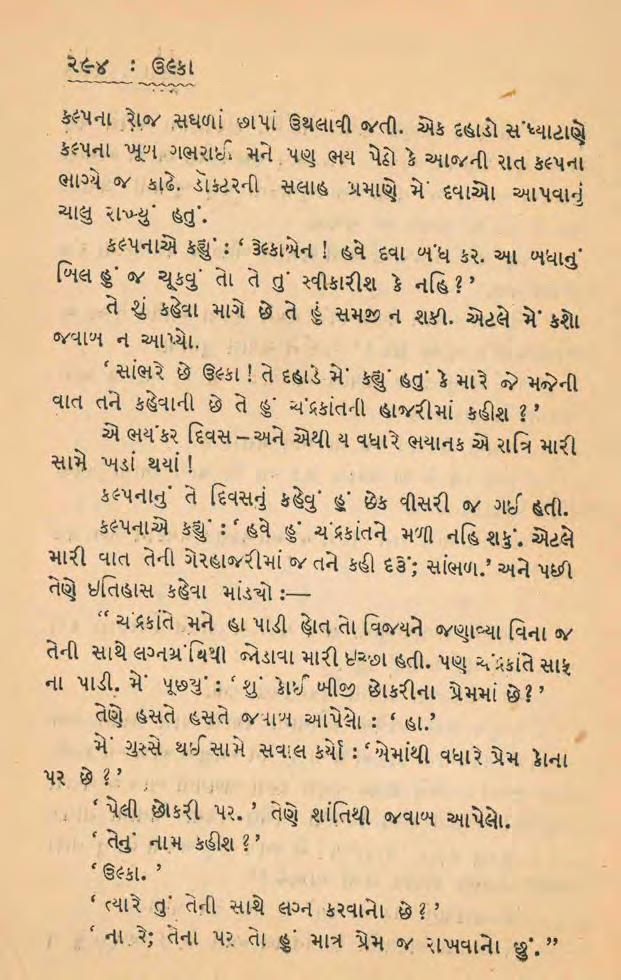 ૨૯૪ : ઉલ્કા
કલ્પના રોજ સઘળાં છાપાં ઉથલાવી જતી. એક દહાડો સંધ્યાટાણે
કલ્પના ખૂબ ગભરાઈ મને પણ ભય પેઠો કે આજની રાત કલ્પના
ભાગ્યે જ કાઢે. ડૉક્ટરની સલાહ પ્રમાણે મેં દવાઓ આપવાનું
ચાલુ રાખ્યું હતું.
કલ્પનાએ કહ્યું : ‘ ઉલ્કાબેન ! હવે દવા બંધ કર. આ બધાનું
બિલ હું જ ચૂકવું તો તે તું સ્વીકારીશ કે નહિ ? ’
તે શું કહેવા માગે છે તે હું સમજી ન શકી. એટલે મેં કશો
જવાબ ન આપ્યો.
‘ સાંભરે છે ઉલ્કા ! તે દહાડે મેં કહ્યું હતું કે મારે જે મજેની
વાત તને કહેવાની છે તે હું ચંદ્રકાંતની હાજરીમાં કહીશ ? ’
એ ભયંકર દિવસ – અને એથી ય વધારે ભયાનક એ રાત્રિ મારી
સામે ખડાં થયાં !
કલ્પનાનું તે દિવસનું કહેવું હું છેક વીસરી જ ગઈ હતી.
કલ્પનાએ કહ્યું : ‘ હવે હું ચંદ્રકાંતને મળી નહિ શકું. એટલે
મારી વાત તેની ગેરહાજરીમાં જ તને કહી દઉં; સાંભળ.’ અને પછી
તેણે ઇતિહાસ કહેવા માંડ્યો :—
“ ચંદ્રકાંતે મને હા પાડી હોત તો વિજયને જણાવ્યા વિના જ
તેની સાથે લગ્નગ્રંથિથી જોડાવા મારી ઇચ્છા હતી. પણ ચંદ્રકાંતે સાફ
ના પાડી. મેં પૂછ્યું : ‘ શું કોઈ બીજી છોકરીના પ્રેમમાં છે ? ’
તેણે હસતે હસતે જવાબ આપેલો : ‘ હા.’
મેં ગુસ્સે થઈ સામે સવાલ કર્યો : ‘ એમાંથી વધારે પ્રેમ કોના
પર છે ? ’
‘ પેલી છોકરી પર. ’ તેણે શાંતિથી જવાબ આપેલો.
‘ તેનું નામ કહીશ ? ’
‘ ઉલ્કા. ’
‘ ત્યારે તું તેની સાથે લગ્ન કરવાનો છે ? ’
‘ ના રે; તેના પર તો હું માત્ર પ્રેમ જ રાખવાનો છું. ”